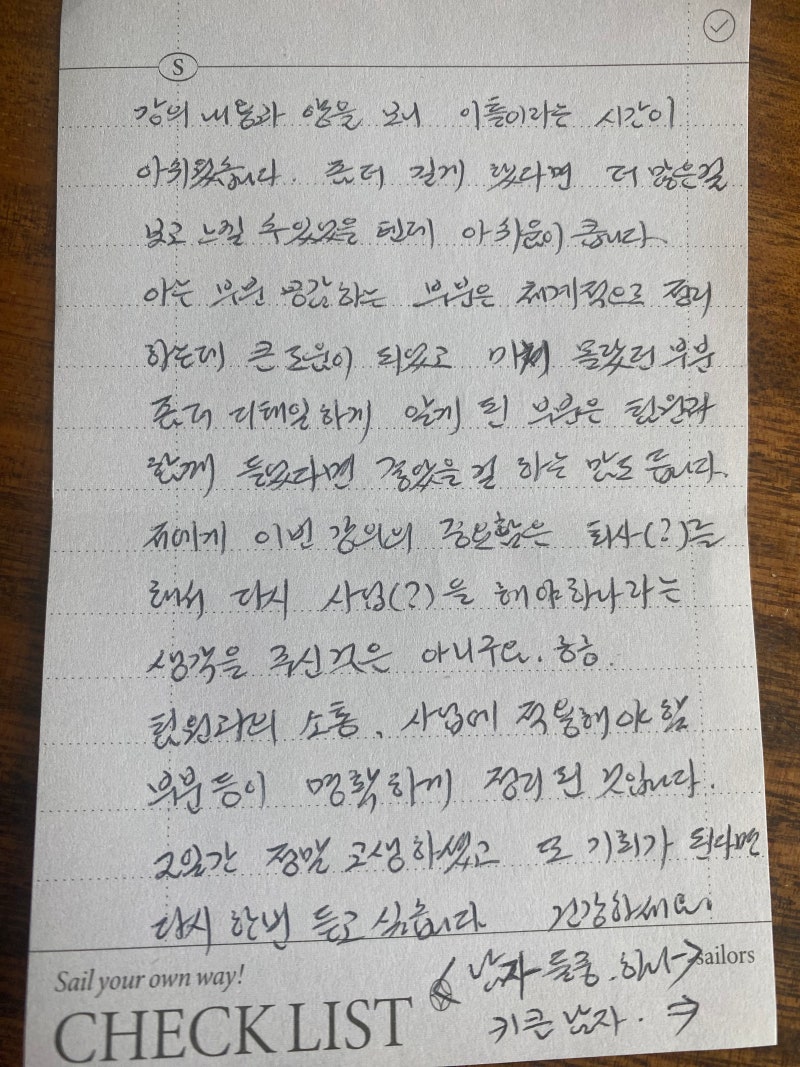 S
강의 내용과 양을 보니 이틀이라는 시간이
아쉬웠습니다. 좀더 길게 했다면 더 많은걸
보고 느낄 수 있었을 텐데 아쉬움이 큽니다.
아는 부분 공감하는 부분은 체계적으로 정리
하는데 큰 도움이 되었고 미처 몰랐던 부분
좀더 디테일하게 알게 된 부분은 팀원과
함께 들었다면 좋았을걸 하는 맘도 듭니다.
저에게 이번 강의의 중요함은 퇴사(?)를
해서 다시 사업(?)을 해야하나라는
생각을 주신것은 아니구요. ㅎㅎ.
팀원과의 소통, 사업에 적용해야 할
부분등이 명확하게 정리된 것입니다.
2일간 정말 고생하셨고 또 기회가 된다면
다시 한번 듣고 싶습니다 건강하세요.
Sail your own way!
남자 들중. 하나→ sailors
CHECK LIST
키큰 남자. ⇒